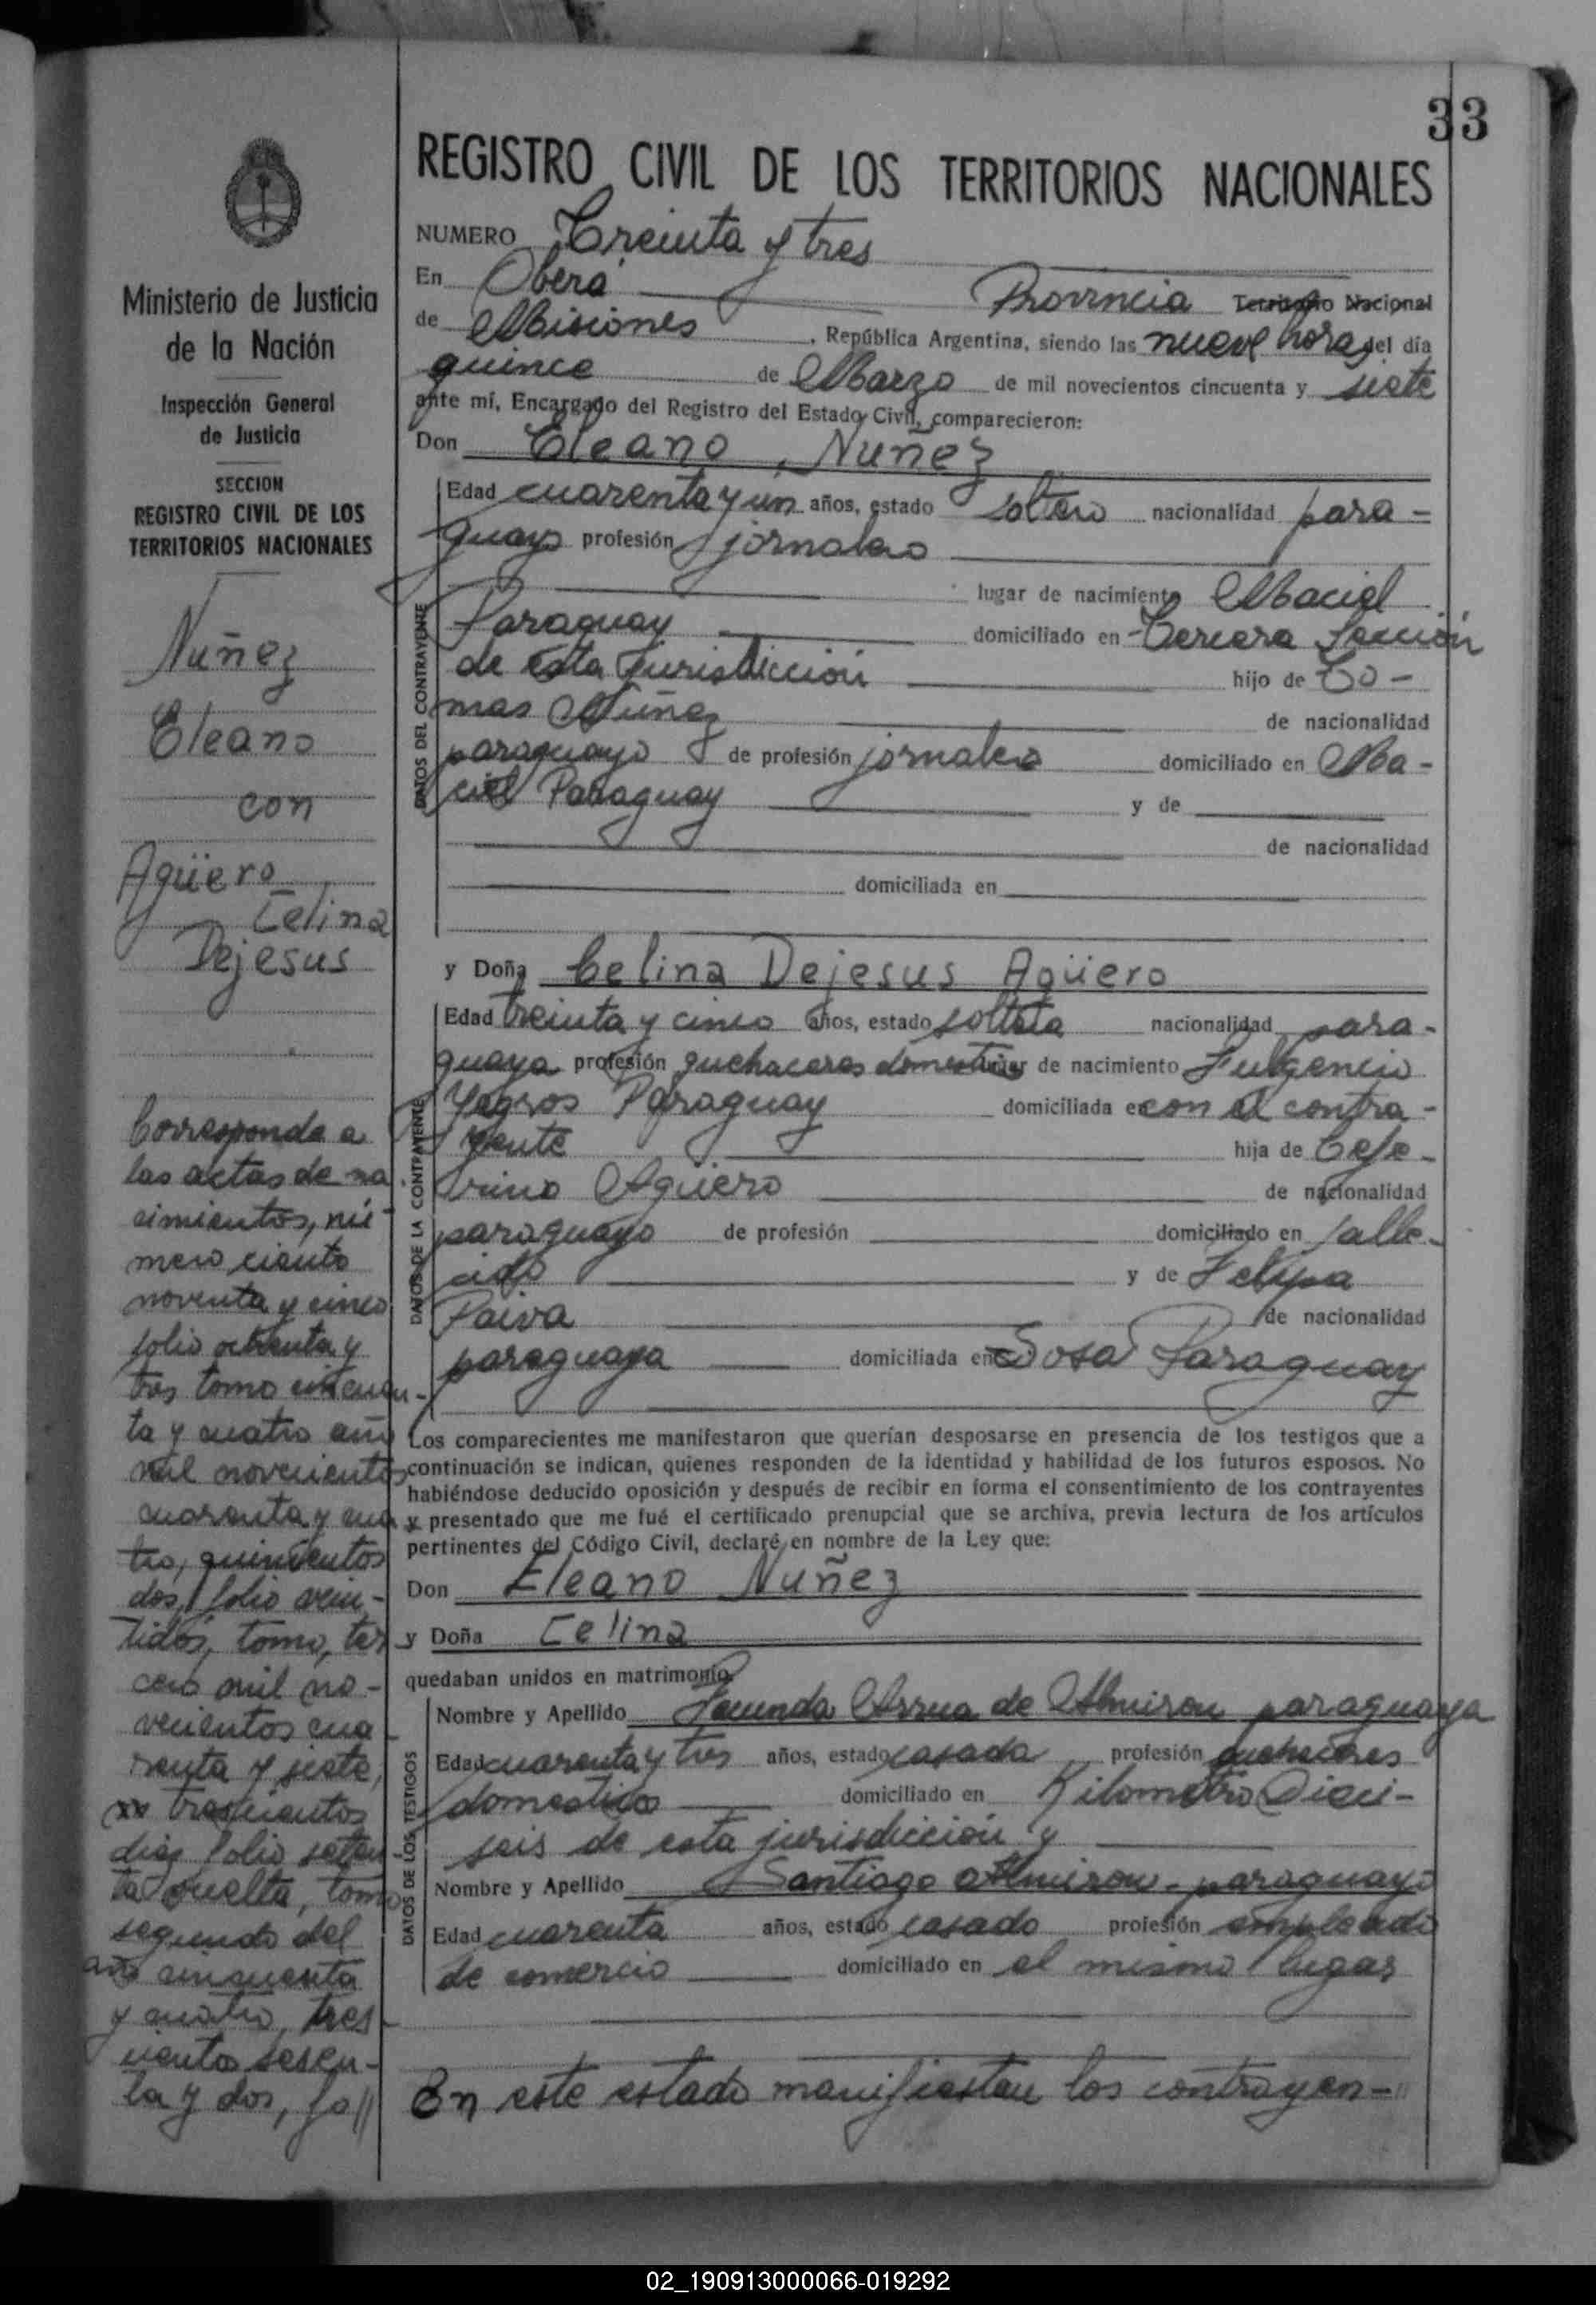 33
REGISTRO CIVIL DE LOS TERRITORIOS NACIONALES
NUMERO Treinta y tres
En Oberá Provincia Territorio Nacional
de Misiones, República Argentina, siendo las nueve horas del día
quince de Marzo de mil novecientos cincuenta y siete
ante mí, Encargado del Registro del Estado Civil, comparecieron:
Don Eleano Nuñez
Edad cuarenta y un años, estado soltero nacionalidad para-
guayo profesión jornalero
lugar de nacimiento Maciel
Paraguay domiciliado en Tercera Sección
de esta jurisdicción hijo de To-
mas Nuñez de nacionalidad
paraguayo de profesión jornalero domiciliado en Ma-
ciel Paraguay y de
de nacionalidad
domiciliada en
DATOS DEL CONTRAYENTE
y Doña Celina Dejesus Agüero
Edad treinta y cinco años, estado soltera nacionalidad para-
guaya profesión quehaceres domesticos lugar de nacimiento Fulgencio
Yegros Paraguay domiciliada en con el contra-
yente hija de Cefe-
rino Agüero de nacionalidad
paraguayo de profesión domiciliado en falle-
cido y de Felipa
Paiva de nacionalidad
paraguaya domiciliada en Sosa Paraguay
DATOS DE LA CONTRAYENTE
Los comparecientes me manifestaron que querían desposarse en presencia de los testigos que a
continuación se indican, quienes responden de la identidad y habilidad de los futuros esposos. No
habiéndose deducido oposición y después de recibir en forma el consentimiento de los contrayentes
y presentado que me fué el certificado prenupcial que se archiva, previa lectura de los artículos
pertinentes del Código Civil, declaré en nombre de la Ley que:
Don Eleano Nuñez
y Doña Celina
quedaban unidos en matrimonio.
Nombre y Apellido Facunda Arrua de Almiron paraguaya
Edad cuarenta y tres años, estado casada profesión quehaceres
domesticos domiciliado en Kilometro Dieci-
seis de esta jurisdicción y
Nombre y Apellido Santiago Almiron - paraguayo
Edad cuarenta años, estado casado profesión empleado
de comercio domiciliado en el mismo lugar
DATOS DE LOS TESTIGOS
En este estado manifiestan los contrayen-//
Ministerio de Justicia
de la Nación
Inspección General
de Justicia
SECCION
REGISTRO CIVIL DE LOS
TERRITORIOS NACIONALES
Nuñez
Eleano
con
Agüero
Celina
Dejesus
Corresponde a
las actas de na
cimientos, nú-
mero ciento
noventa y cinco
folio ochenta y
tres tomo cincuen-
ta y cuatro año
mil novecientos
cuarenta y cua
tro, quinientos
dos, folio vein-
tidós, tomo, ter
cero mil no-
vecientos cua
renta y siete,
trescientos
diez folio seten-
ta vuelta, tomo
segundo del
año cincuenta
y cuatro, tres-
cientos sesen-
ta y dos, fo//
02_190913000066-019292